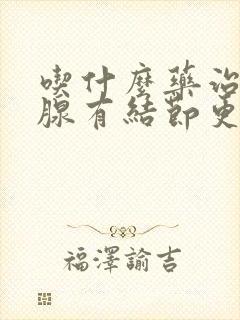 喫什麼藥治
腺有結節更
福澤諭吉